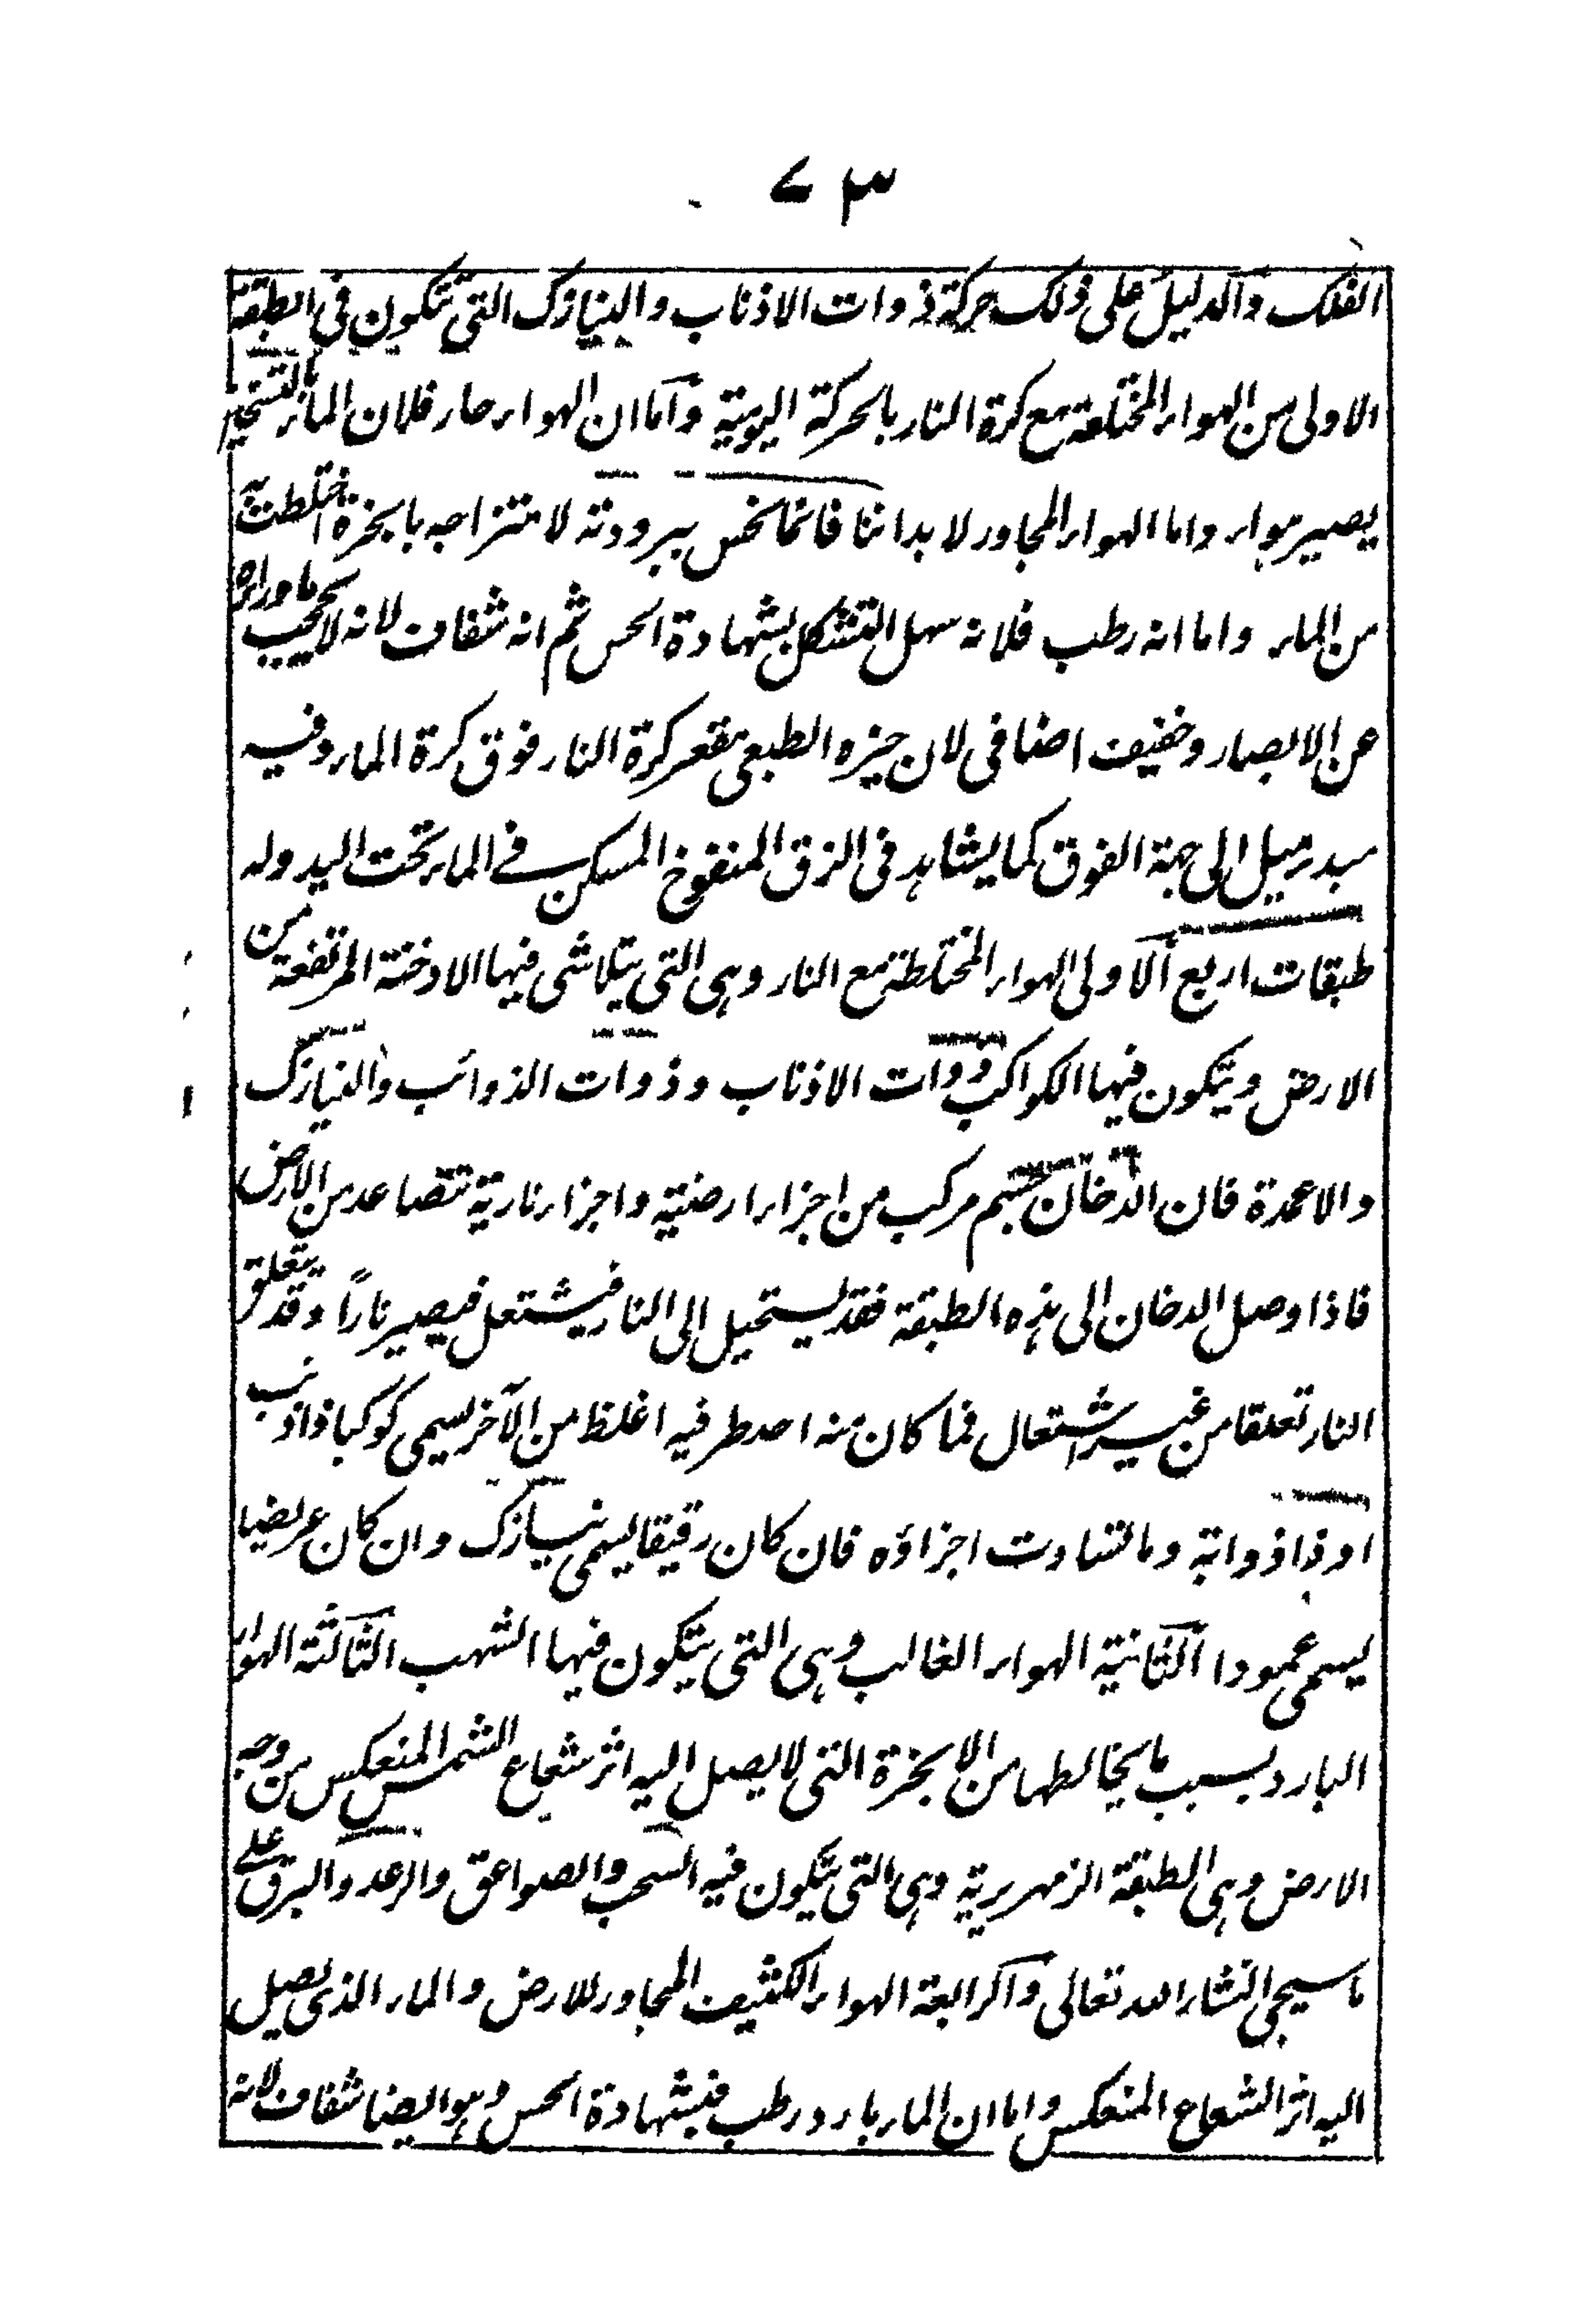 ٧٣
الفلک والدلیل علی ذلک حرکة ذوات الاذناب والنیازک التی تتکون فی الطبقة
الاولی من الهواء المختلفة مع کرة النار بالحرکة الیومیة واما ان الهواء حار فلان الماء بالتسخین
یصیر هواء واما الهواء المجاور لابداننا فانما نحس ببرودته لامتزاجه بابخرة اختلطت به
من الماء واما انه رطب فلانه سهل التشکل بشهادة الحس ثم انه شفاف لانه لا یحجب ماوراءه
عن الابصار وخفیف اضافی لان حیزه الطبعی مقعر کرة النار فوق کرة الماء وفیه
مبدء میل الی جهة الفوق کما یشاهد فی الزق المنفوخ المسکن فے الماء تحت الید وله
طبقات اربع الاولی الهواء المختلطة مع النار وهی التی یتلاشی فیها الادخنة المرتفعة من
الارض ویتکون فیها الکواکب ذوات الاذناب وذوات الذوائب والنیازک
والاعمدة فان الدخان جسم مرکب من اجزاء ارضیة واجزاء ناریة تتصاعد من الارض
فاذا وصل الدخان الی هذه الطبقة فقد یستحیل الی النار فیشتعل فیصیر ناراً وقد یتعلق
النار تعلقا من غیر اشتعال فما کان منه احد طرفیه اغلظ من الآخر یسمی کوکبا ذا ذنب
او ذا ذوابة وما تشاوت اجزاؤه فان کان رقیقا یسمی نیازک وان کان عریضا
یسمی عمودا الثانیة الهواء الغالب وهی التی یتکون فیها الشهب الثالثة الهواء
البارد بسبب ما یخالطها من الابخرة التی لا یصل الیه اثر شعاع الشمس المنعکس من وجه
الارض وهی الطبقة الزمهریریة وهی التی یتکون فیه السحب والصواعق والرعد والبرق علے
ما سیجی انشاء الله تعالی والرابعة الهواء الکثیف المجاور للارض والماء الذی یصل
الیه اثر الشعاع المنعکس واما ان الماء بارد رطب فبشهادة الحس وهو ایضا شفاف لانه